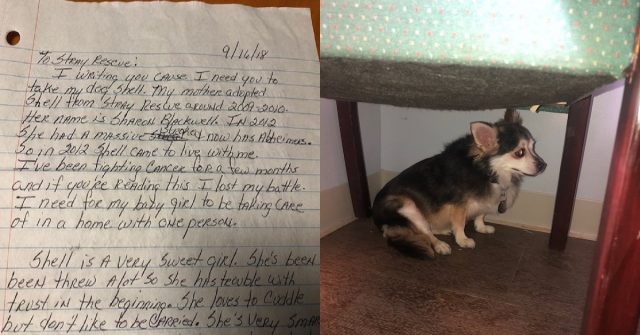 9/16/18
To Stray Rescue:
I writing you cause I need you to
take my dog Shell. My mother adopted
Shell from Stray Rescue around 2009-2010.
Her name is Sharon Blackwell. In 2012
She had a massive now has Alzheimers.
So in 2012 Shell came to live with me.
I've been fighting Cancer for a few months
and if you're reading this I lost my battle.
I need for my baby girl to be taking care
of in a home with one person.
Shell is a very sweet girl. She's been
been threw alot so she has trouble with
trust in the beginning. She loves to cuddle
but don't like to be carried. She's very smart